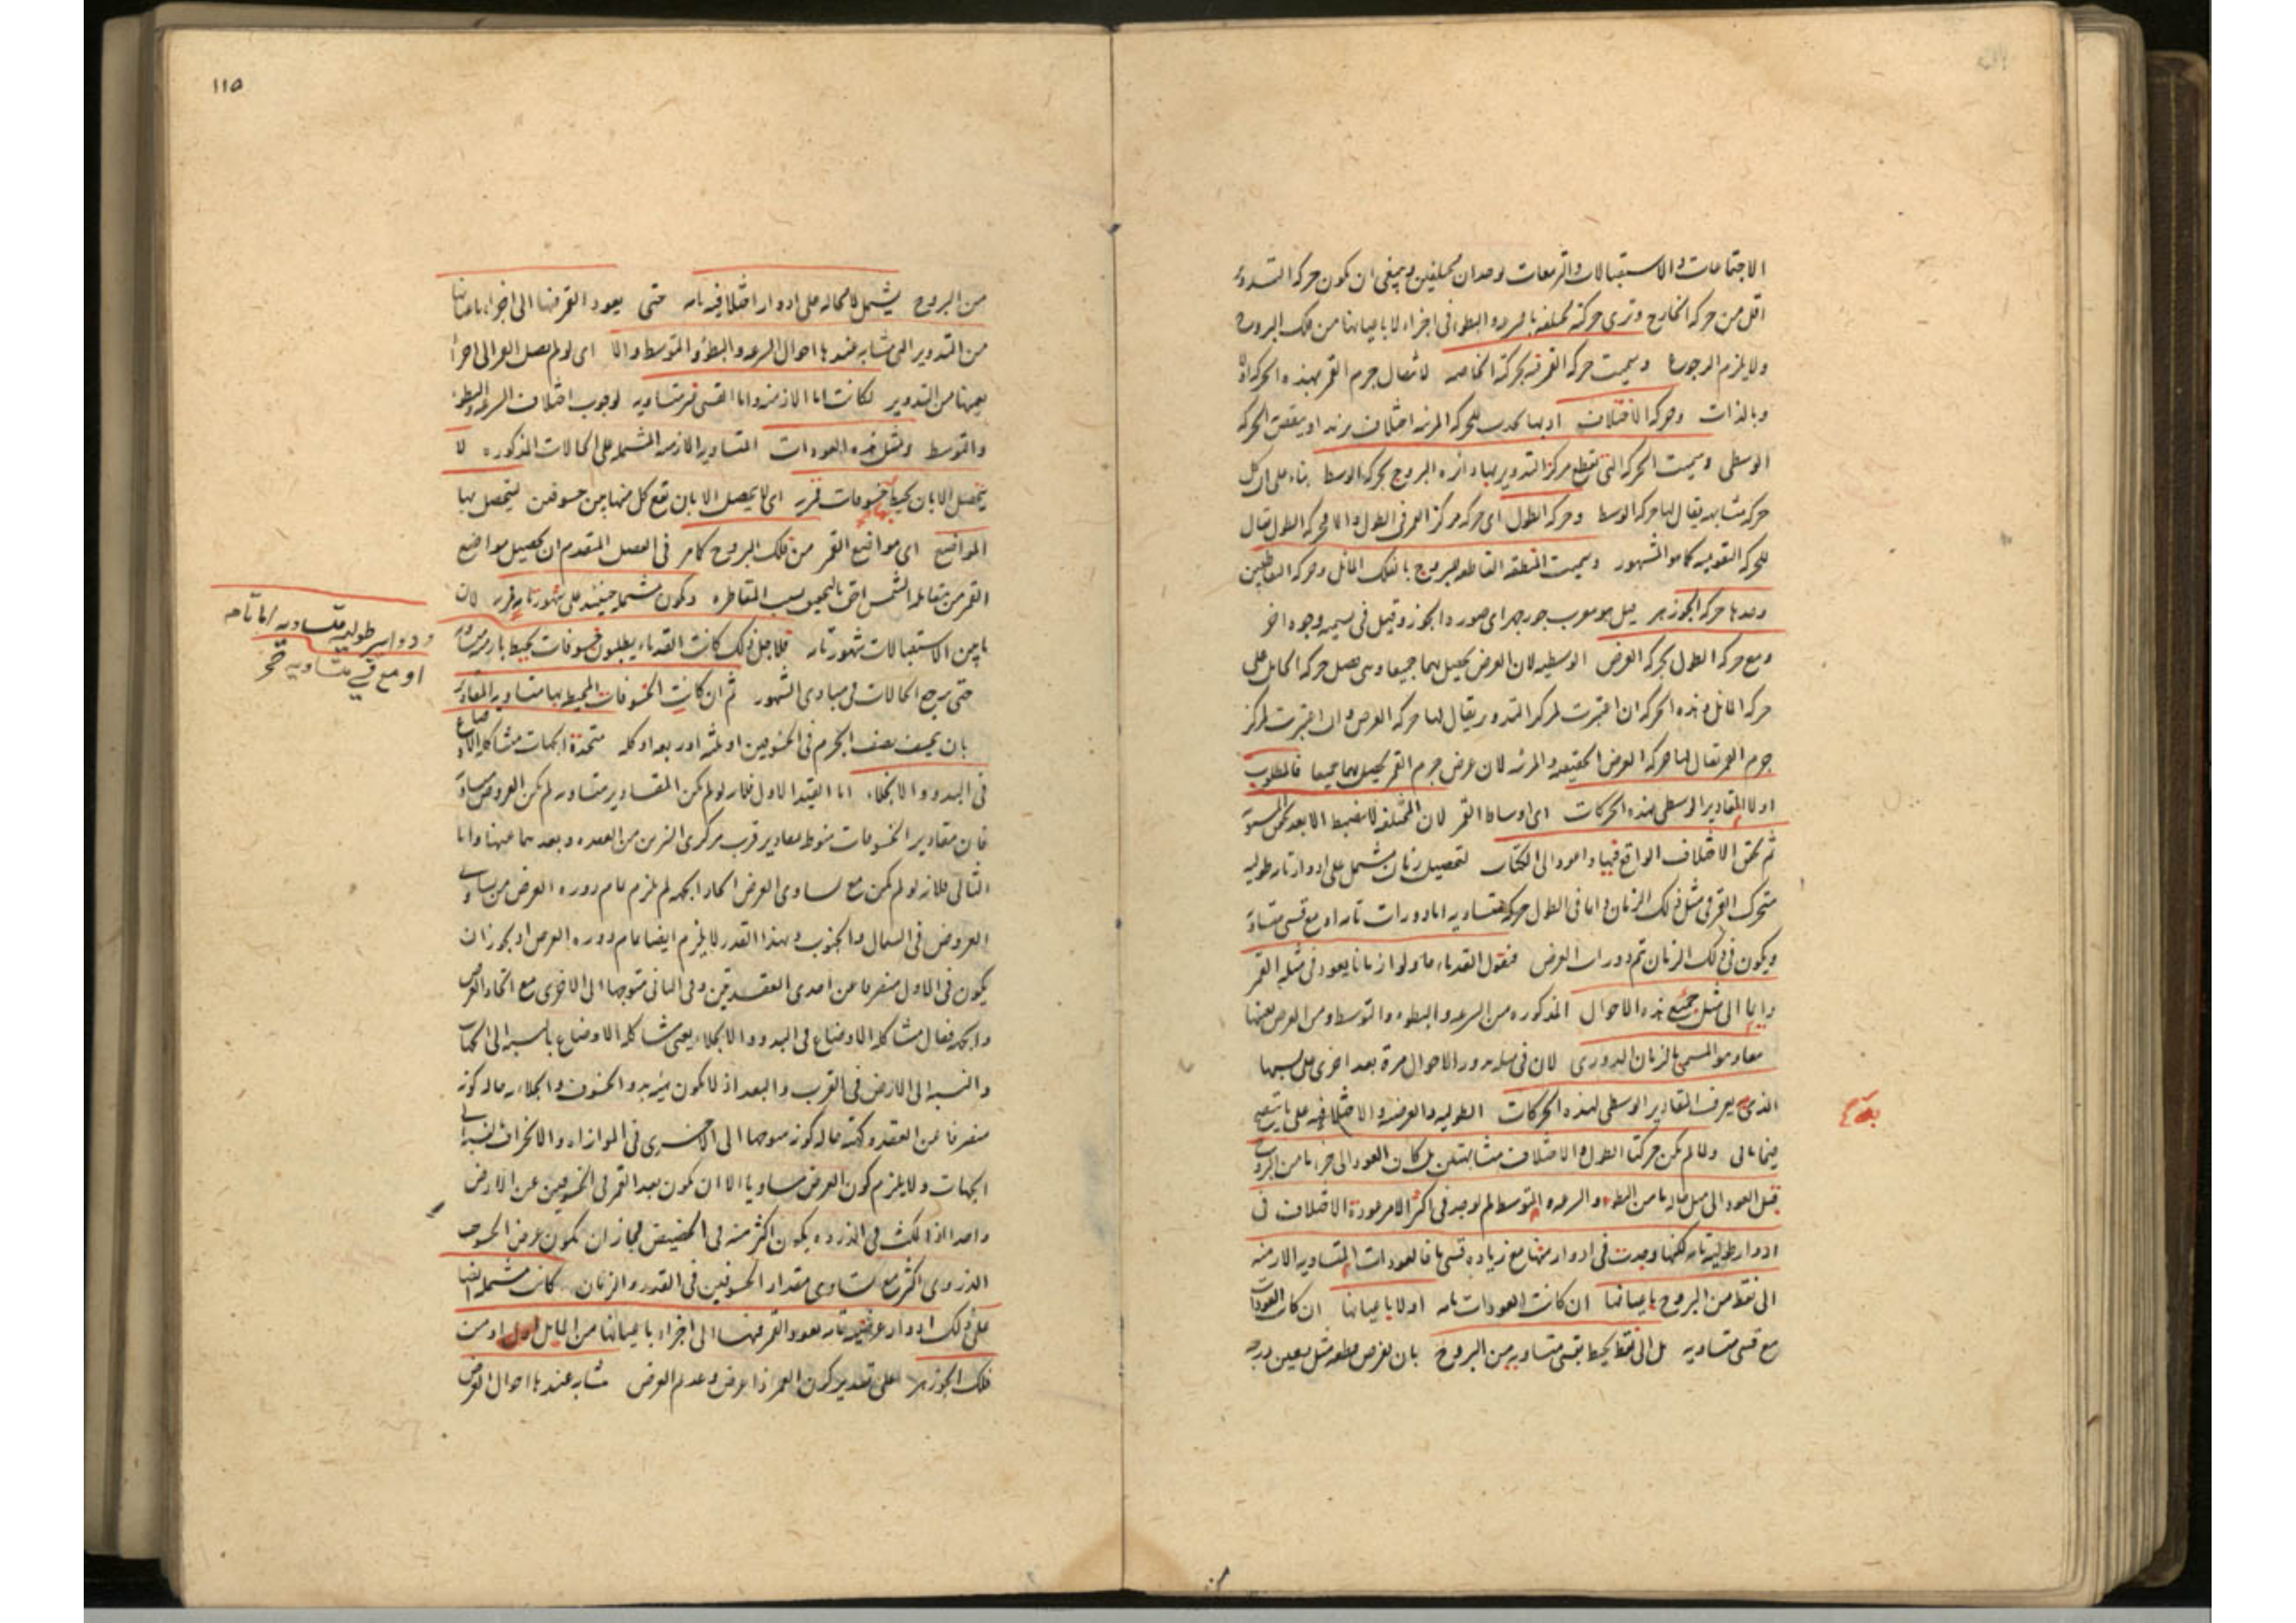 الاجتماعات والاستقبالات والتربيعات
اقل من حركة الخارج وترى حركته مختلفة بالسرعة والبطء فى اجزاء لا باعيانها من فلك البروج
ولا يلزم الرجوع وسميت حركة القمر بحركته الخاصة لانتقال جرم القمر بهذه الحركة
وبالذات وحركة الاختلاف اذ بها اختلاف
الوسطى وسميت الحركة التى تقطع مركز التدوير بها دائرة البروج بحركة الوسط بناء على ان كل
حركة متشابهة يقال لها حركة الوسط وحركة الطول اى حركة مركز القمر فى الطول
للحركة التقويمية كما هو المشهور وسميت المنطقة القاطعة للبروج بالفلك المائل وحركة التقاطعين
وحدها حركة الجوزهر قيل هو معرب جوزجهر اى صورة الجوز وقيل فى تسميته وجوه اخر
ومع حركة الطول بحركة العرض الوسطية لان العرض يحصل بهما جميعا وهى فضل حركة المائل على
حركة المائل وهذه الحركة ان اعتبرت لمركز التدوير يقال لها حركة العرض وان اعتبرت لمركز
جرم القمر يقال لها حركة العرض الحقيقية والمرئية لان عرض جرم القمر يحصل بهما جميعا فالمطلوب
اولا المقادير الوسطى لهذه الحركات اى اوساط القمر لان المختلفة لا تضبط الا بعد
ثم تحقق الاختلاف الواقع فيها لتحصيل زمان يشتمل على ادوار تامة طولية
يتحرك القمر فى مثل ذلك الزمان دائما فى الطول حركة متساوية اما دورات تامة او مع قسى متساوية
ويكون فى ذلك الزمان تتم دورات العرض فنقول القدماء حاولوا زمانا يعود فى مثله القمر
دائما الى مثل جميع هذه الاحوال المذكورة من السرعة والبطوء والتوسط ومن العرض
معا وهو المسمى بالزمان الدورى لان فى مثله يدور الاحوال مرة بعد اخرى
الذى منه يعرف المقادير الوسطى لهذه الحركات الطولية والعرضية والاختلافية على ما
فيما يأتى ولما لم تكن حركتا الطول والاختلاف متشابهتين بل كان العود الى جزء ما من البروج
قبل العود الى مثل حاله ما من البطء والسرعة والتوسط لم يوجد فى اكثر الامر عودة الاختلاف فى
ادوار طولية تامة لكنها وجدت فى ادوار منها مع زيادة قسى ما فالعودات المتساوية الازمنة
الى نقط من البروج باعيانها ان كانت العودات تامة او لا باعيانها ان كانت العودات
مع قسى متساوية بل الى نقط يحيط بقسى متساوية من البروج بان نفرض نقطة مثل
١١٥
من البروج يشتمل لا محالة على ادوار اختلافية تامة حتى يعود القمر منها الى اجزاء باعيانها
من التدوير التى تشابه عندها احوال السرعة والبطؤ والتوسط والا اى لو لم يصل القمر الى اجزاء
بعينها من التدوير لكانت اما الازمنة واما القسى غير متساوية لوجوب اختلاف السرعة والبطؤ
والتوسط ومثل هذه العودات المتساوية الازمنة المشتملة على الحالات المذكورة لا
يتحصل الا بان يحيط بها خسوفات قمرية اى لا يحصل الا بان تقع كل منها بين خسوفين ليتحصل بها
المواضع اى مواضع القمر من فلك البروج كما مر فى الفصل المتقدم ان تحصيل مواضع
القمر من مقابلة الشمس بسبب المقاطرة وتكون مشتملة حينئذ على شهور تامة قمرية لان
ما بين الاستقبالات شهور تامة فلاجل ذلك كانت القدماء يطلبون خسوفات يحيط بازمنة متساوية
حتى يرجع الحالات فى مبادى الشهور ثم ان كانت الخسوفات المحيط بها متساوية المقادير
بان يخسف نصف الجرم فى الخسوفين او ثلثه او ربعه او كله متحدة الجهات متشاكلة الاوضاع
فى البدو والانجلاء اما القيد الاول فلانه لو لم تكن المقادير متساوية لم تكن العروض متساوية
فان مقادير الخسوفات منوطة بمقادير قرب مركزى النيرين من العقدة وبعدهما عنها واما
الثانى فلانه لو لم يكن مع تساوى العرض اتحاد الجهة لم يلزم تمام دورة العرض من تساوى
العروض فى الشمال والجنوب وبهذا القدر لا يلزم ايضا تمام دورة العرض اذ يجوز ان
يكون فى الاول منصرفا عن احدى العقدتين وفى الثانى متوجها الى الاخرى مع اتحاد العرض
والجهة فقال متشاكلة الاوضاع فى البدو والانجلاء يعنى تشاكلة الاوضاع بالنسبة الى الجهات
والنسبة الى الارض فى القرب والبعد اذ لا يكون هيئة بدو الخسوف والجلاء حالة كونه
منصرفا عن العقدة كهيئته حالة كونه متوجها الى الاخرى فى الموازاة والانحراف
الجهات ولا يلزم كون العرض متساويا الا ان يكون بعد القمر فى الخسوفين عن الارض
واحدا اذ ذلك فى الذروة يكون اكثر منه فى الحضيض فجاز ان يكون عرض الخسوف
الذروى اكثر مع تساوى مقدار الخسوفين فى القدر والزمان كانت مشتملة ايضا
على ذلك ادوار عرضية تامة يعود القمر منها الى اجزاء باعيانها من المايل او من
فلك الجوزهر على تقدير كون القمر ذا عرض وعديم العرض تشابه عندها احوال العرض
ودواير طولية متساوية اما تامة
او مع قسى متساوية